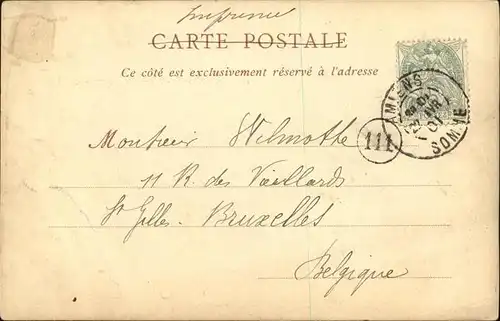 Imprimé
CARTE POSTALE
Ce côté est exclusivement réservé à l'adresse
AMIENS
SOMME
111
Monsieur Wilmotte
11 R. des Vieillards
St Gilles - Bruxelles
Belgique